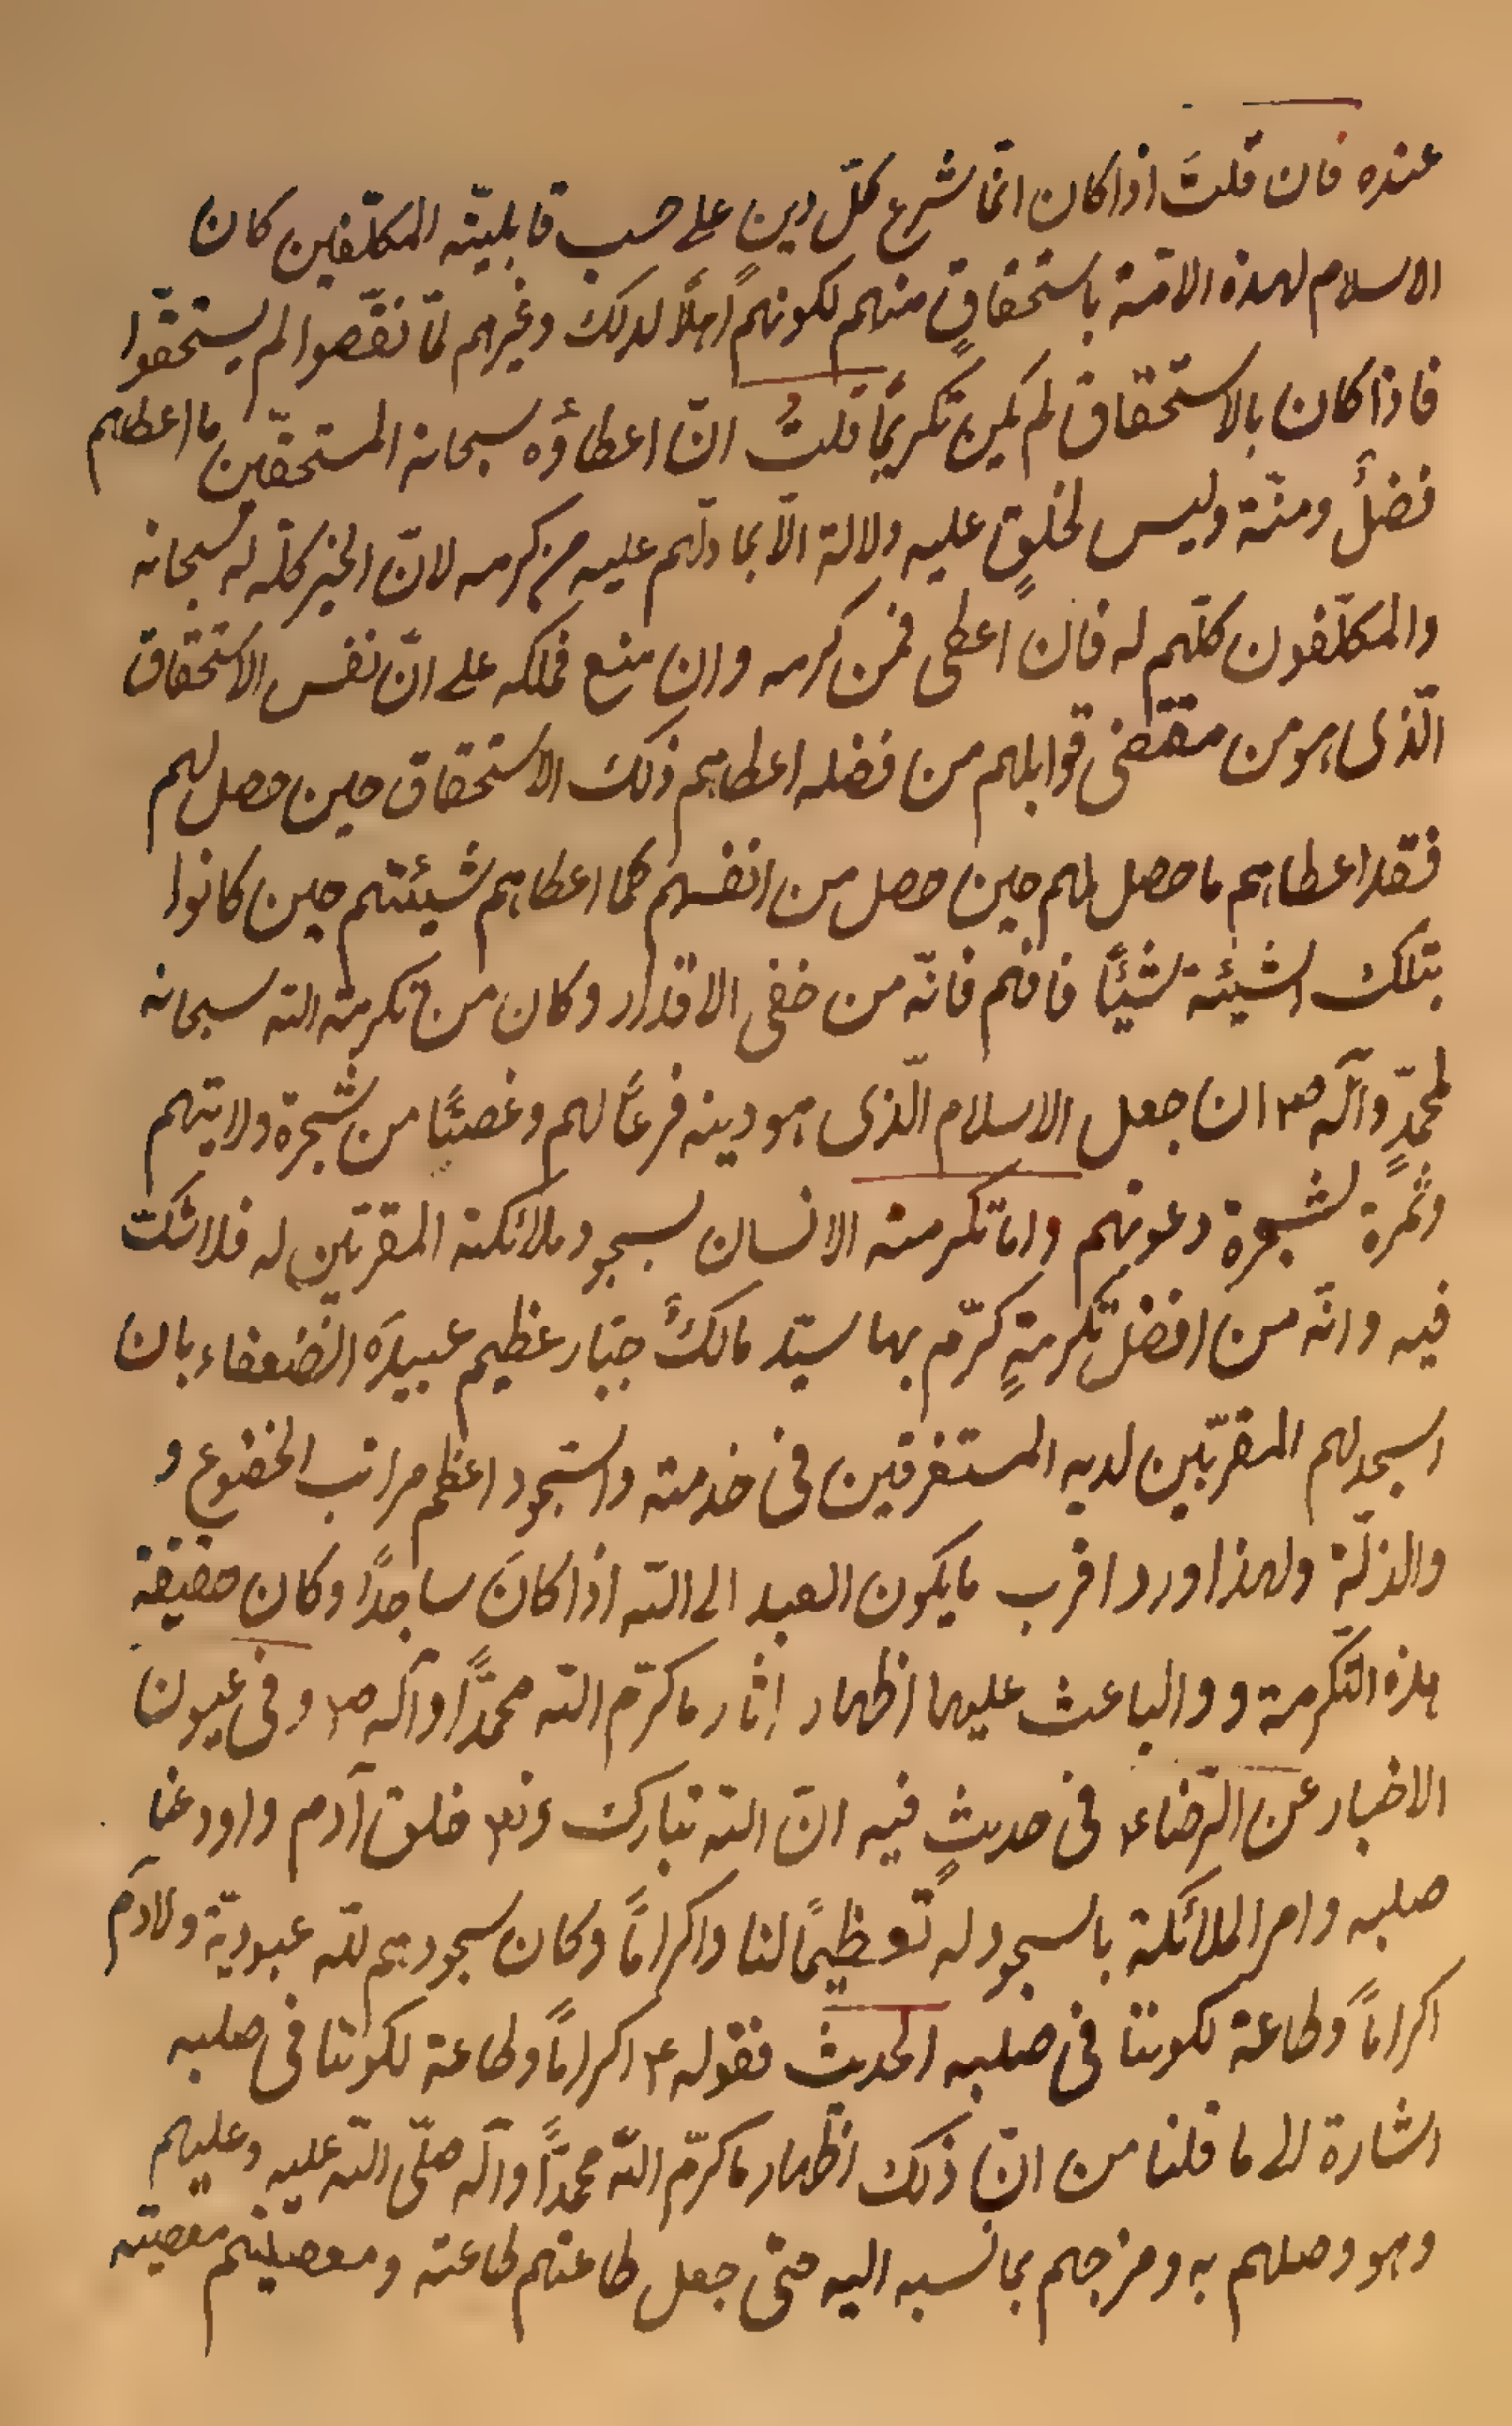 عنده فان قلتَ اذا كان انّما شرع كلّ دين على حسب قابليّة المكلّفين كان
الاسلام لهذه الامّة باستحقاقٍ منهم لكونهم اهلًا لذلك وغيرهم لمّا نقّصوا لم يستحقّوا
فاذا كان بالاستحقاق لم يكن تكريمًا قلتُ انّ اعطاؤه سبحانه المستحقّين ما اعطاهم
فضلٌ ومنّة وليس لخلقٍ عليه دلالة الّا بما دلّهم عليه من كرمه لانّ الخير كلّه له سبحانه
والمكلّفون كلّهم له فان اعطى فمن كرمه وان منع فملكه على انّ نفس الاستحقاق
الّذى هو من مقتضى قوابلهم من فضله اعطاهم ذلك الاستحقاق حين حصل لهم
فقد اعطاهم ما حصل لهم حين حصل من انفسهم كما اعطاهم شيئتهم حين كانوا
بتلك الشيئة شيئًا فافهم فانّه من خفى الاقدار وكان من تكرمة الله سبحانه
لمحمّدٍ وآله ص۴ ان جعل الاسلام الّذى هو دينه فرعًا لهم وغصنًا من شجرة ولايتهم
وثمرة لشجرة دعوتهم وامّا تكرمة الانسان لسجود ملائكته المقرّبين له فلا شكّ
فيه وانّه من افضل تكرمةٍ كرّم بها سيّد مالكٌ جبّار عظيم عبيدَه الضّعفاء بان
اسجد لهم المقرّبين لديه المستغرقين فى خدمته والسّجود اعظم مراتب الخضوع و
والذلّة ولهذا ورد اقرب ما يكون العبد الى الله اذا كانَ ساجدًا وكان حقيقة
هذه التكرمة و والباعث عليها اظهار اثار ما كرّم الله محمّدًا وآله ص۴ وفى عيون
الاخبار عن الرّضاء۴ فى حديثٍ فيه انّ الله تبارك وتع۴ خلق آدم واودعنا
صلبه وامر الملائكة بالسجود له تعظيمًا لنا واكرامًا وكان سجودهم لله عبوديّة ولادَم
اكرامًا وطاعة لكوننا فى صلبه الحديث فقوله ۴ اكرامًا وطاعة لكوننا فى صلبه
اشارة الى ما قلنا من انّ ذلك اظهار ما كرّم الله محمّدًا وآله صلّى الله عليه وعليهم
وهو وصلهم به ومزجهم بما نسبه اليه حتّى جعل طاعتهم طاعته ومعصيتهم معصيته